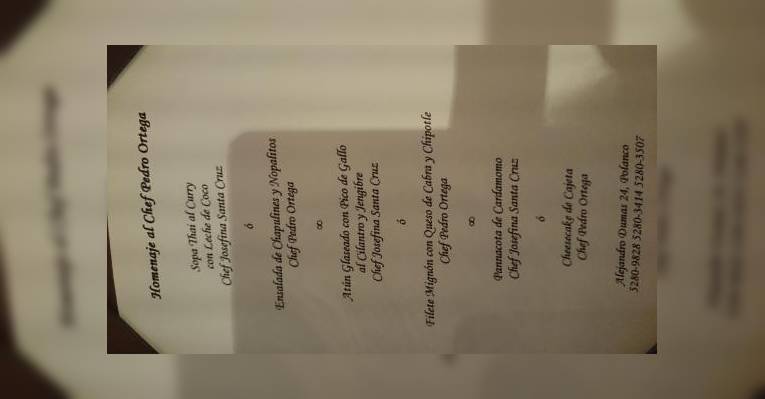 Homenaje al Chef Pedro Ortega
Sopa Thai al Curry
con Leche de Coco
Chef Josefina Santa Cruz
ó
Ensalada de Chapulines y Nopalitos
Chef Pedro Ortega
∞
Atún Glaseado con Pico de Gallo
al Cilantro y Jengibre
Chef Josefina Santa Cruz
ó
Filete Mignón con Queso de Cabra y Chipotle
Chef Pedro Ortega
∞
Pannacota de Cardamomo
Chef Josefina Santa Cruz
ó
Cheesecake de Cajeta
Chef Pedro Ortega
Alejandro Dumas 24, Polanco
5280-9828 5280-3414 5280-3507